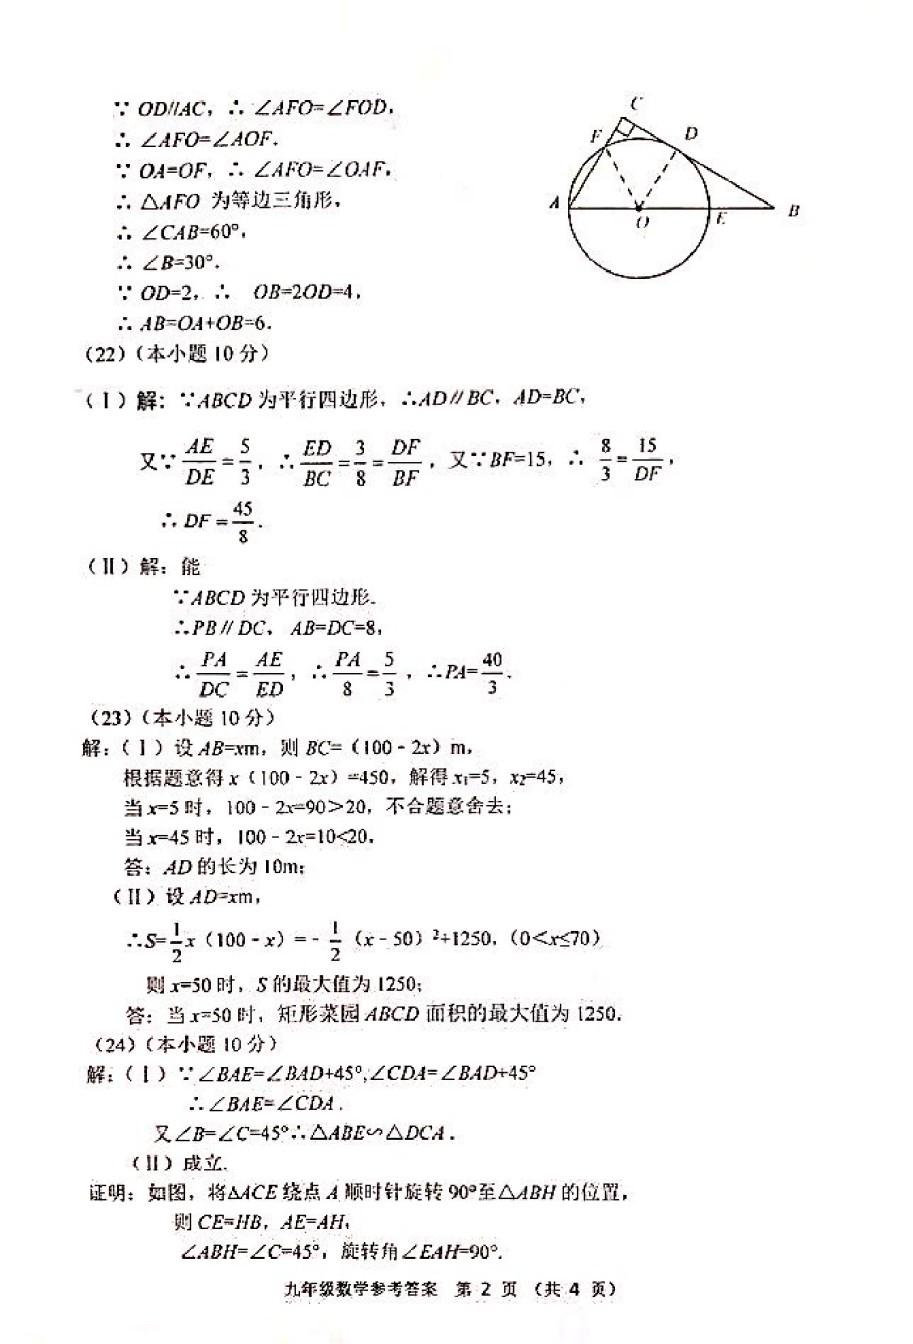 ∵ OD//AC，∴ ∠AFO=∠FOD.
∴ ∠AFO=∠AOF.
∵ OA=OF，∴ ∠AFO=∠OAF.
∴ △AFO 为等边三角形，
∴ ∠CAB=60°，
∴ ∠B=30°.
∵ OD=2，∴ OB=2OD=4，
∴ AB=OA+OB=6.
C
F
D
A
O
E
B
（22）（本小题 10 分）
（Ⅰ）解：∵ABCD 为平行四边形，∴AD∥BC，AD=BC，
又∵ AE/DE = 5/3，∴ ED/BC = 3/8 = DF/BF，又∵BF=15，∴ 8/3 = 15/DF，
∴ DF = 45/8.
（Ⅱ）解：能
∵ABCD 为平行四边形.
∴PB∥DC，AB=DC=8，
∴ PA/DC = AE/ED，∴ PA/8 = 5/3，∴PA= 40/3.
（23）（本小题 10 分）
解：（Ⅰ）设 AB=xm，则 BC=（100﹣2x）m，
根据题意得 x（100﹣2x）=450，解得 x₁=5，x₂=45，
当 x=5 时，100﹣2x=90＞20，不合题意舍去；
当 x=45 时，100﹣2x=10<20.
答：AD 的长为 10m；
（Ⅱ）设 AD=xm，
∴S= 1/2 x（100﹣x）=﹣ 1/2 （x﹣50）²+1250，（0＜x≤70）
则 x=50 时，S 的最大值为 1250；
答：当 x=50 时，矩形菜园 ABCD 面积的最大值为 1250.
（24）（本小题 10 分）
解：（Ⅰ）∵∠BAE=∠BAD+45°,∠CDA=∠BAD+45°
∴∠BAE=∠CDA.
又∠B=∠C=45°∴△ABE∽△DCA.
（Ⅱ）成立.
证明：如图，将△ACE 绕点 A 顺时针旋转 90°至△ABH 的位置，
则 CE=HB，AE=AH，
∠ABH=∠C=45°，旋转角∠EAH=90°.
九年级数学参考答案 第 2 页 （共 4 页）